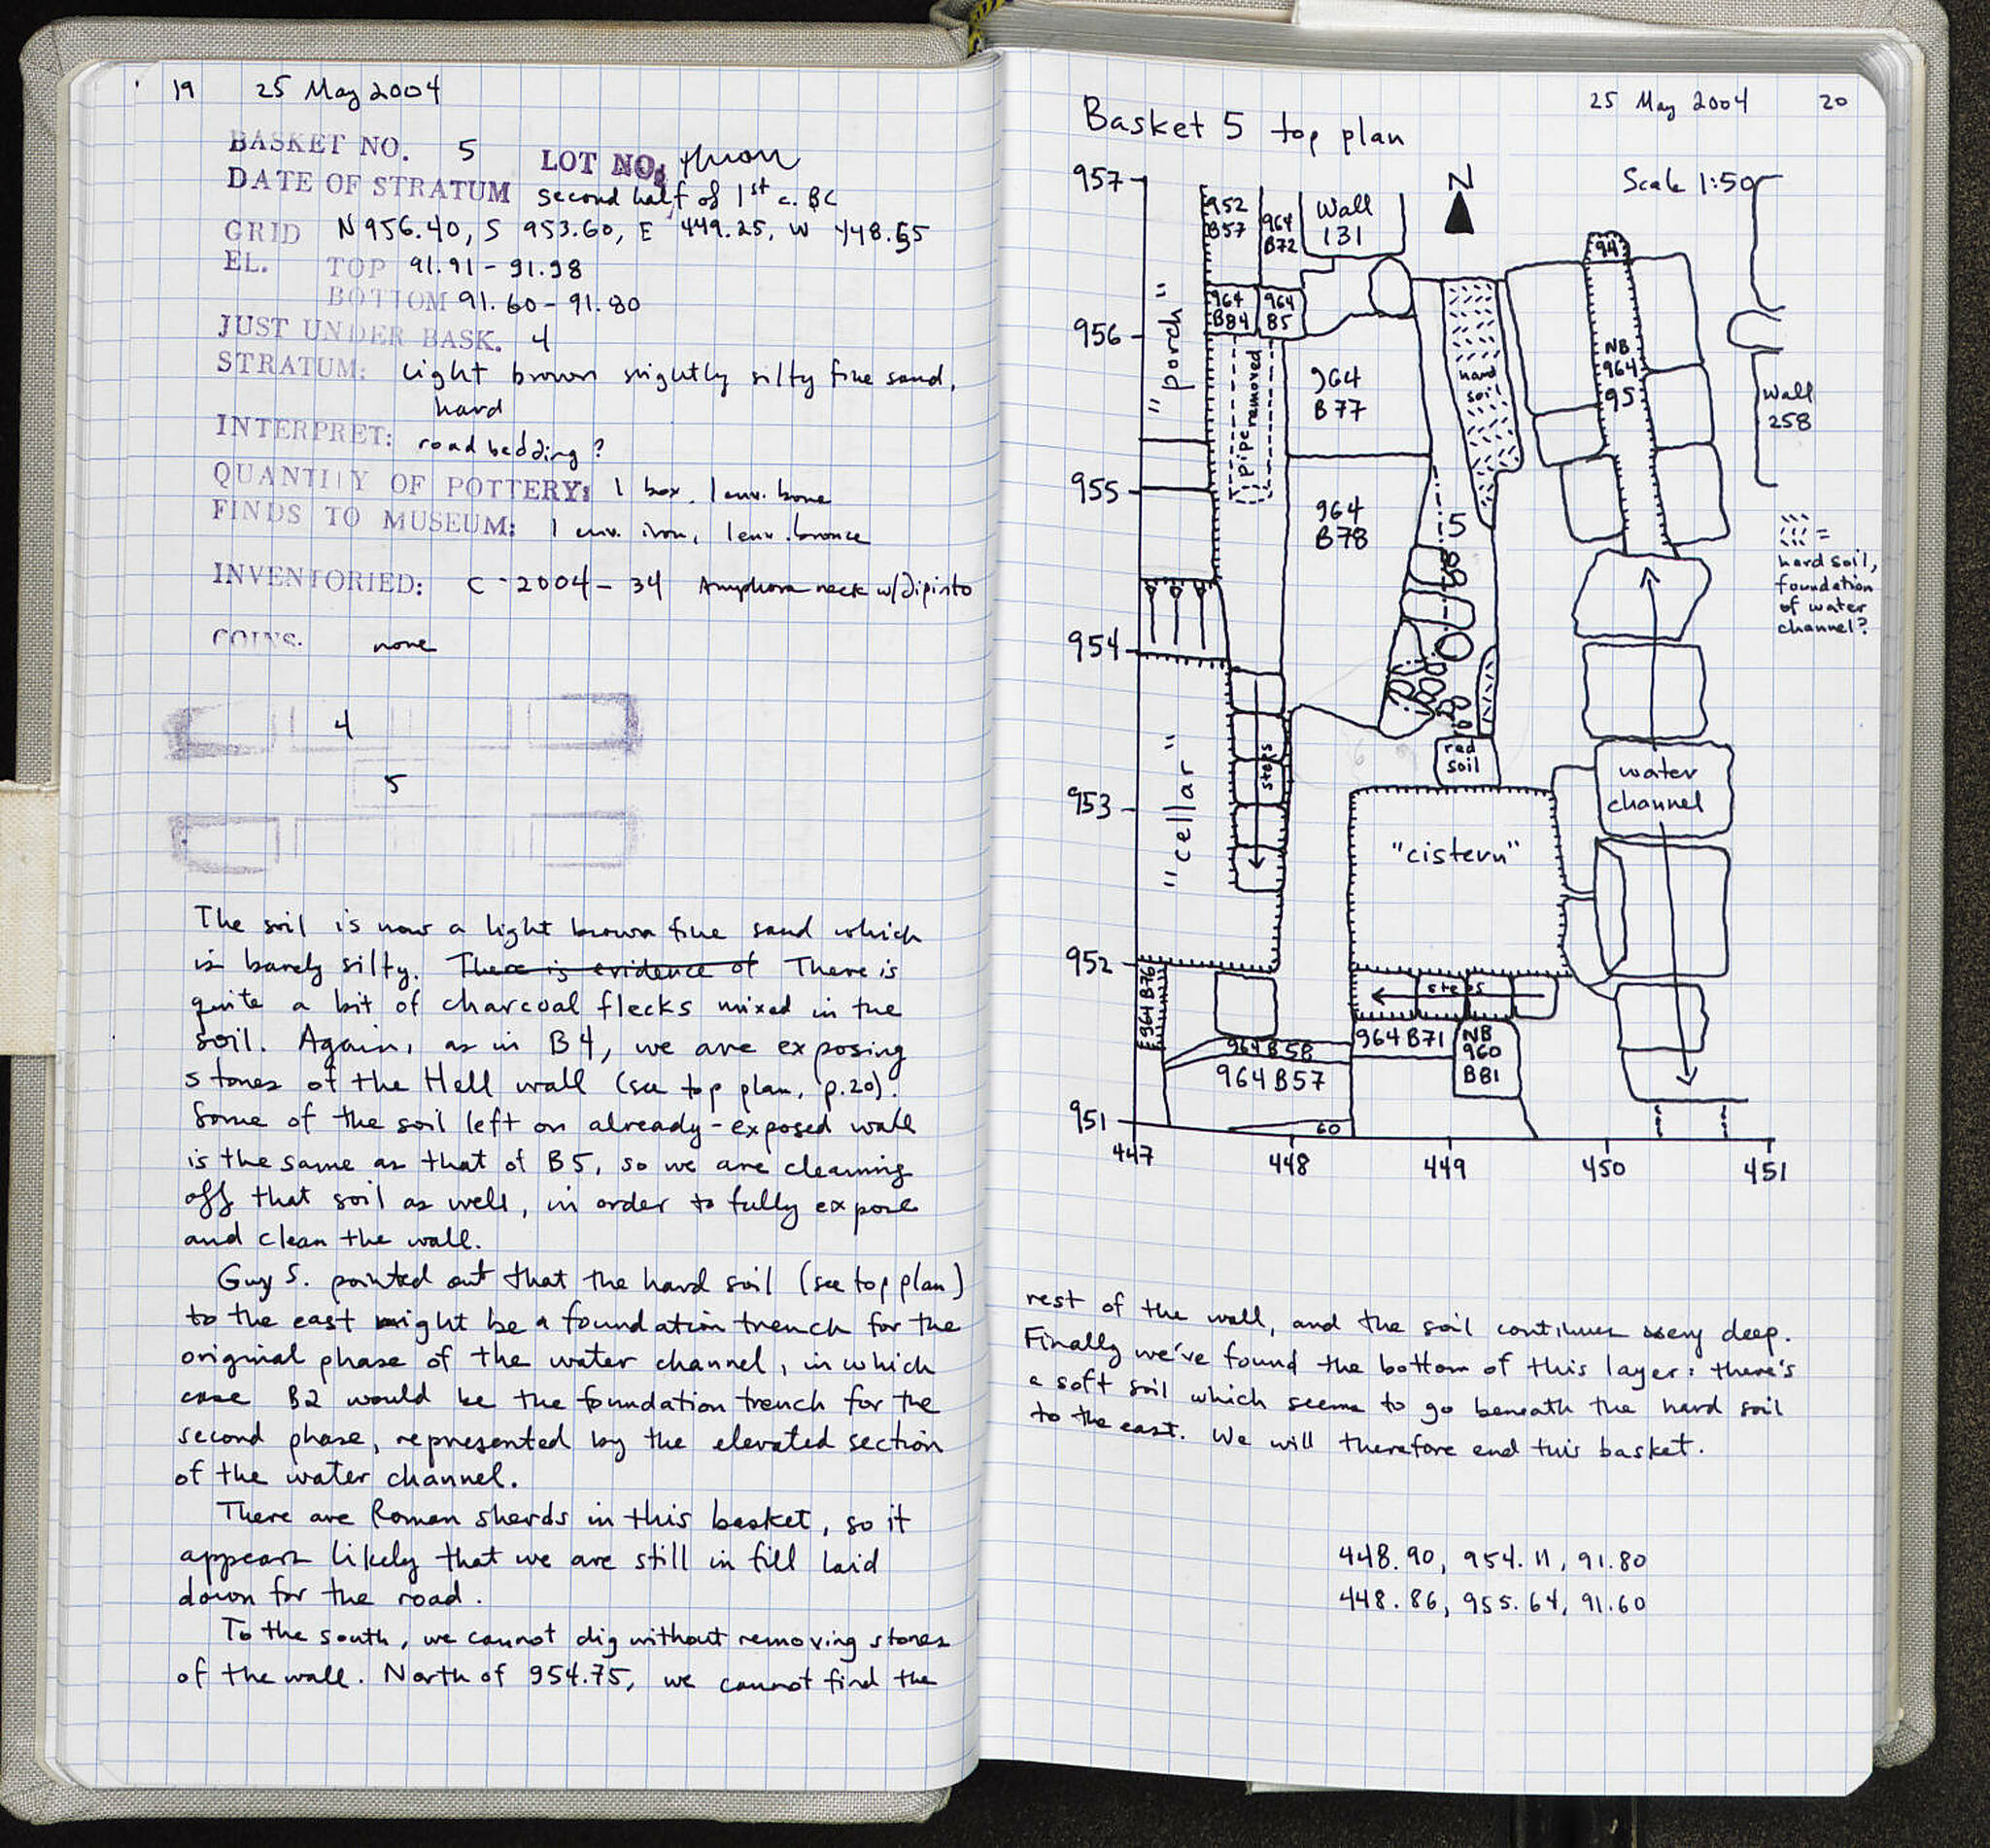 19 25 May 2004
BASKET NO. 5 LOT NO: thrown
DATE OF STRATUM second half of 1st c. BC
GRID N 956.40, S 953.60, E 449.25, W 448.55
EL. TOP 91.91 - 91.98
BOTTOM 91.60 - 91.80
JUST UNDER BASK. 4
STRATUM: light brown slightly silty fine sand,
hard
INTERPRET: road bedding?
QUANTITY OF POTTERY: 1 box, 1 env. bone
FINDS TO MUSEUM: 1 env. iron, 1 env. bronze
INVENTORIED: C-2004-34 Amphora neck w/dipinto
COINS. none
4
5
The soil is now a light brown fine sand which
is barely silty. There is evidence of There is
quite a bit of charcoal flecks mixed in the
soil. Again, as in B4, we are exposing
stones of the Hell wall (see top plan, p.20).
Some of the soil left on already-exposed wall
is the same as that of B5, so we are cleaning
off that soil as well, in order to fully expose
and clean the wall.
Guy S. pointed out that the hard soil (see top plan)
to the east might be a foundation trench for the
original phase of the water channel, in which
case B2 would be the foundation trench for the
second phase, represented by the elevated section
of the water channel.
There are Roman sherds in this basket, so it
appears likely that we are still in fill laid
down for the road.
To the south, we cannot dig without removing stones
of the wall. North of 954.75, we cannot find the
25 May 2004 20
Basket 5 top plan
Scale 1:50
N
957
956
955
954
953
952
951
447
448
449
450
451
952
B57
964
B72
Wall
131
94
964
B84
964
85
"porch"
pipe removed
964
B77
hard
soil
NB
964
95
Wall
258
964
B78
5
=
hard soil,
foundation
of water
channel?
"cellar"
steps
red
soil
water
channel
"cistern"
steps
964 B76
964 B58
964 B57
964 B71
NB
960
B81
60
rest of the wall, and the soil continues very deep.
Finally we've found the bottom of this layer: there's
a soft soil which seems to go beneath the hard soil
to the east. We will therefore end this basket.
448.90, 954.11, 91.80
448.86, 955.64, 91.60